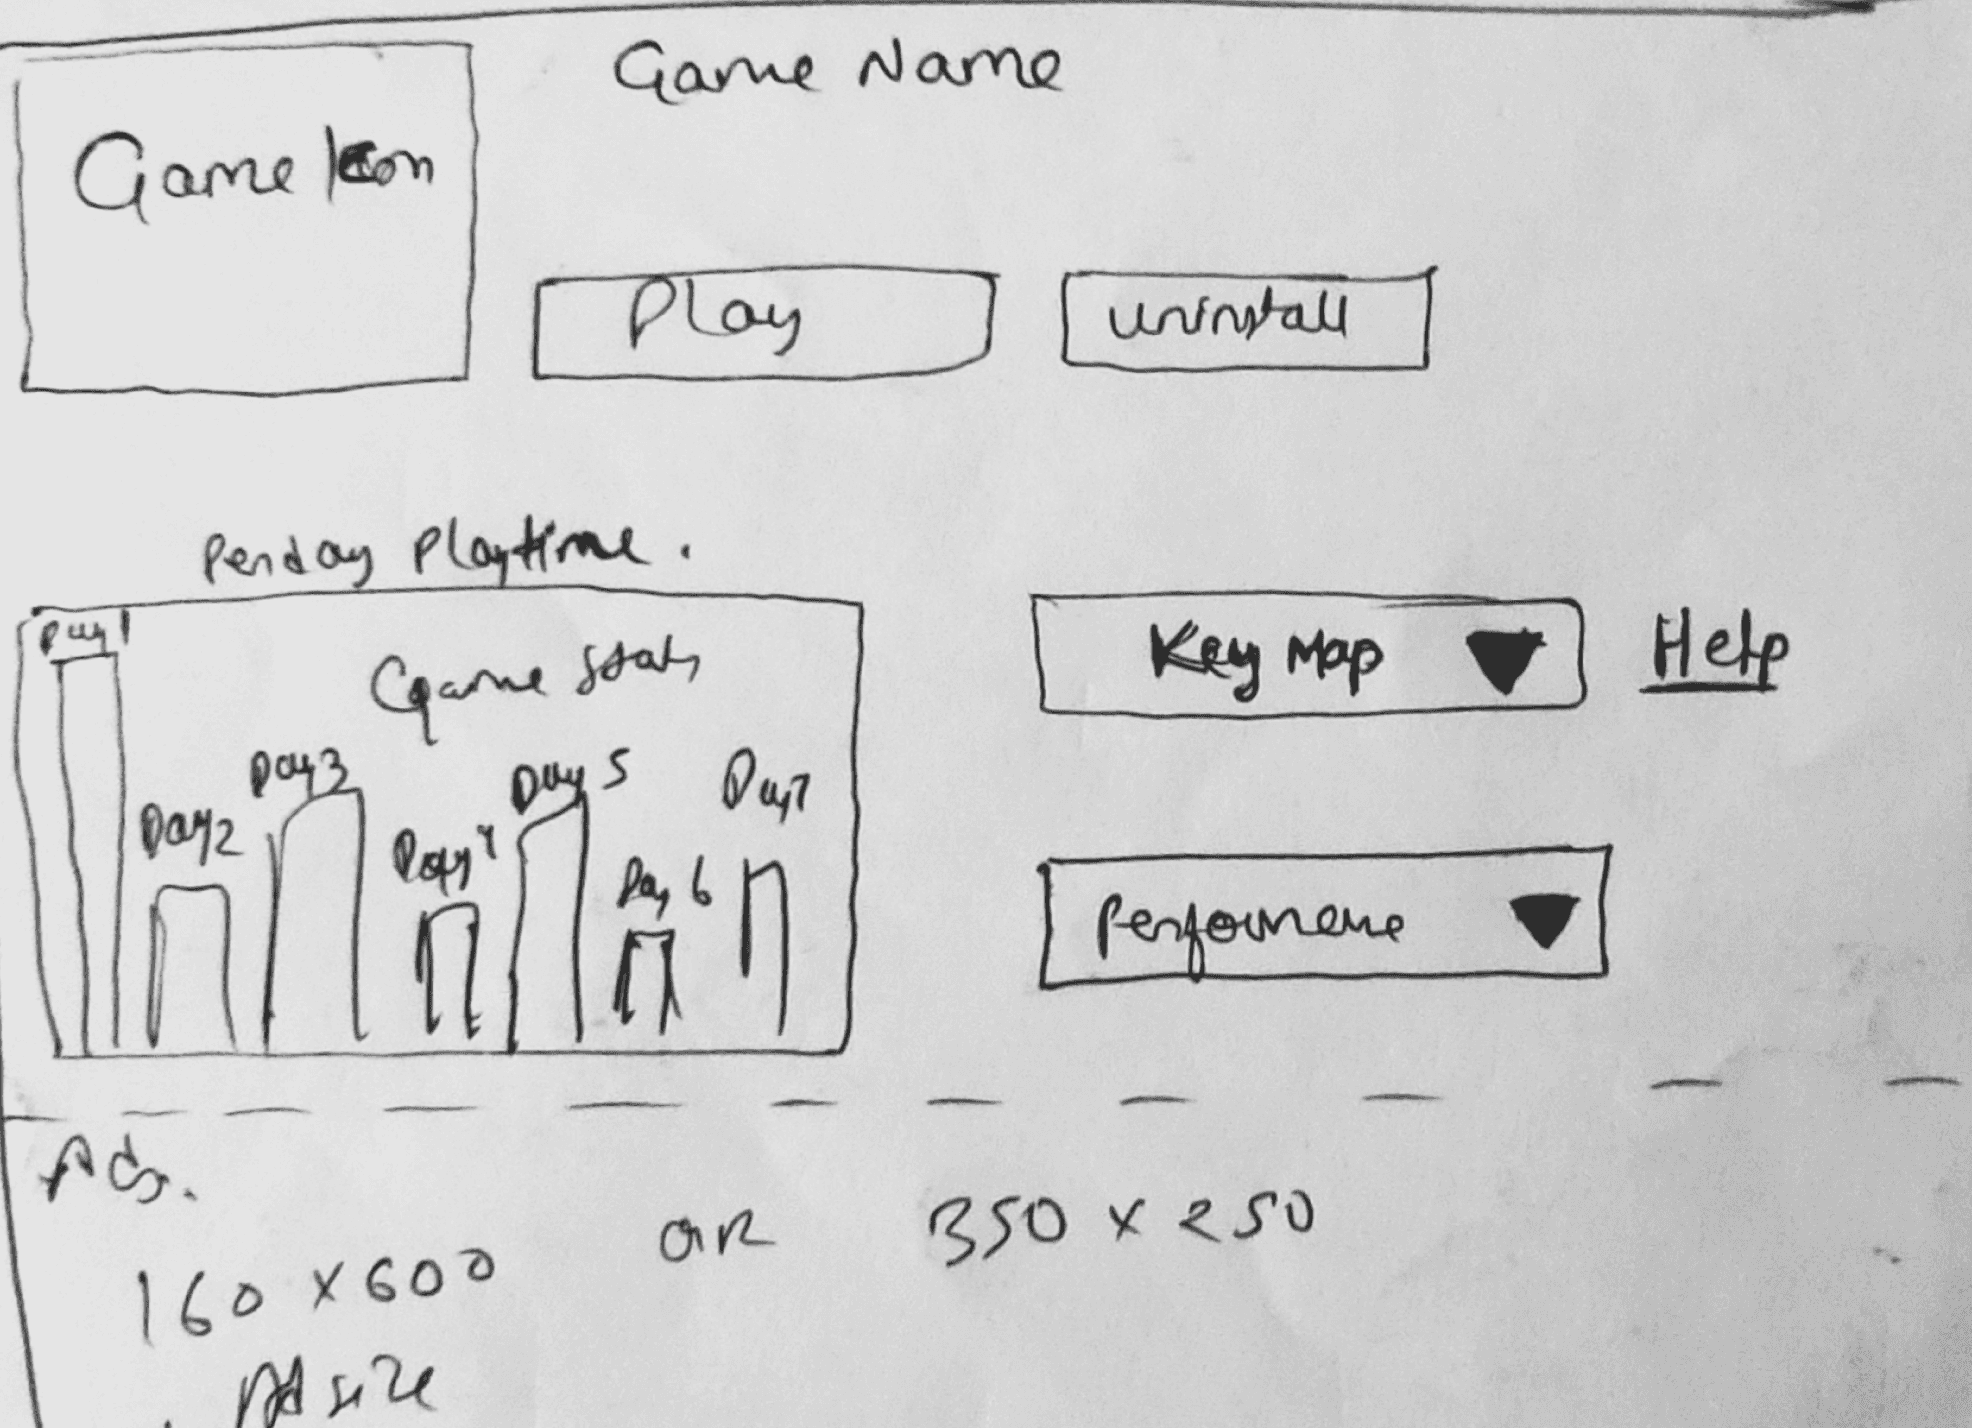 Game Name
Game Icon
Play
uninstall
Perday Playtime.
Day 1
Game Stats
Key Map
Help
Day 3
Day 5
Day 7
Day 2
Day 4
Day 6
Performence
Ads.
160 x 600
OR
350 x 250
Ad size